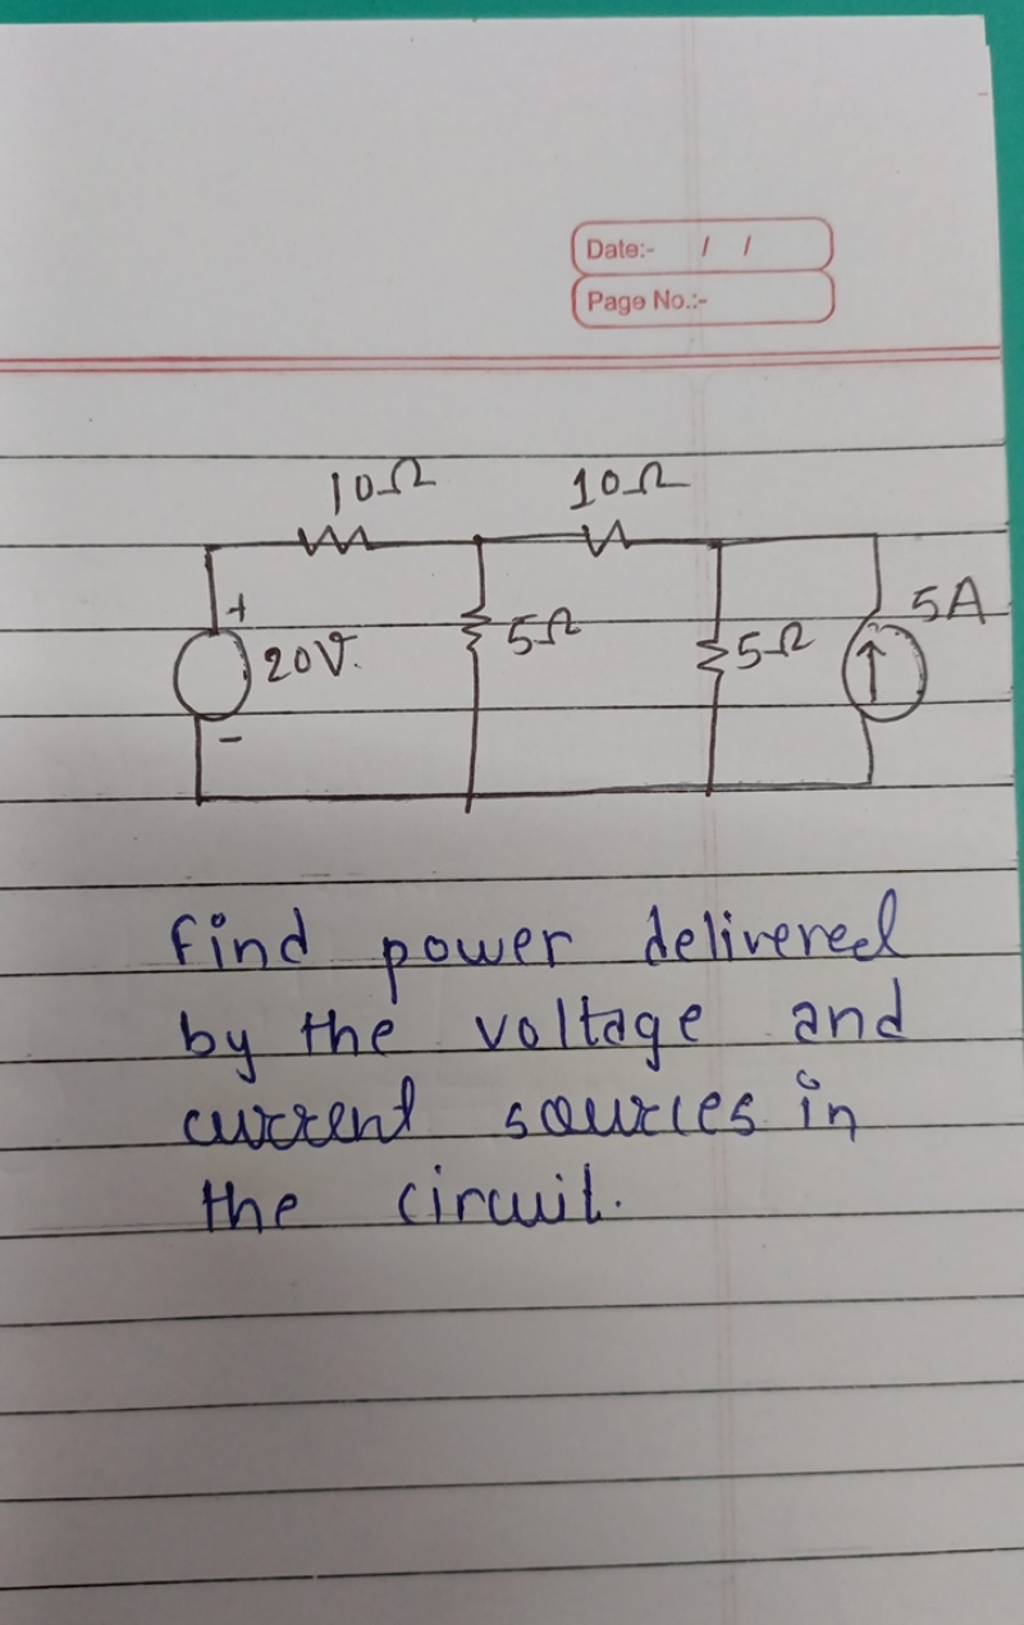 Date:- / /
Page No.:-
10Ω 10Ω
+ 5A
20V. 5Ω 5Ω
-
find power delivered
by the voltage and
current sources in
the circuit.